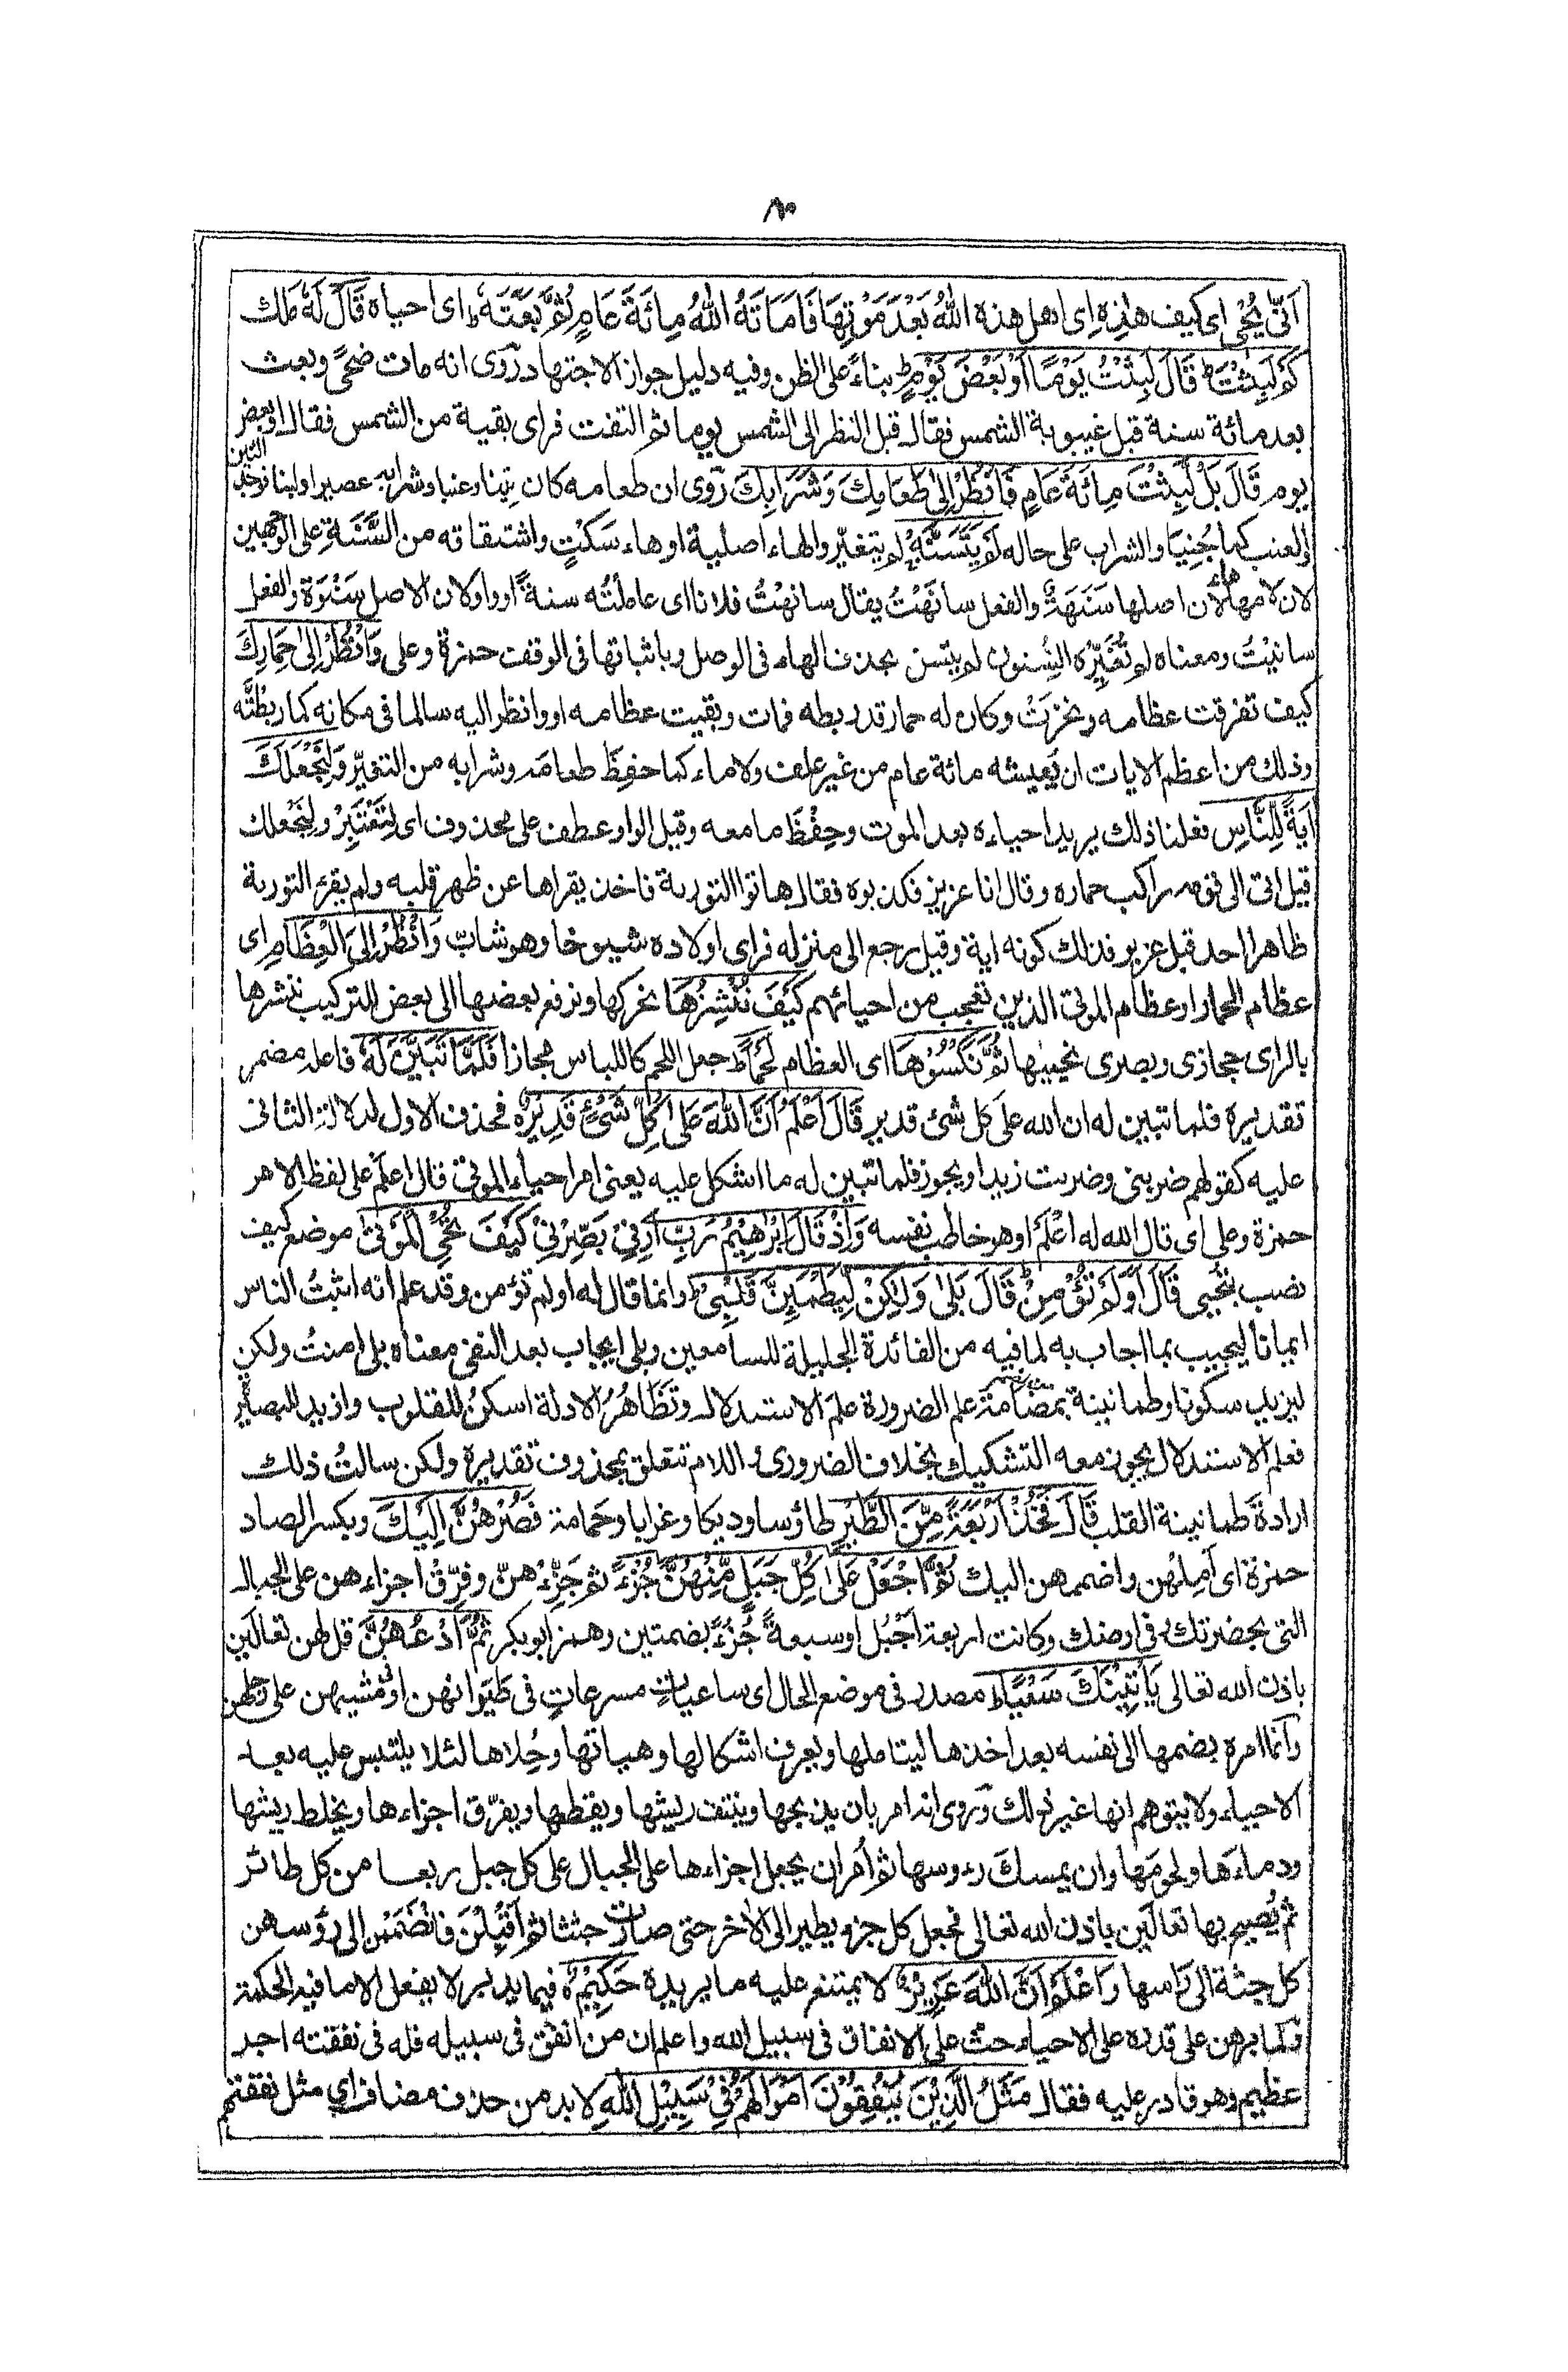 ٨٥
اَنّٰى يُحْيٖ اى كيف هٰذِهِ اى اهل هذه اللهُ بَعْدَ مَوْتِهَا فَاَمَاتَهُ اللهُ مِائَةَ عَامٍ ثُمَّ بَعَثَهٗ ط اى احياه قَالَ لَهٗ مَلك
كَمْ لَبِثْتَ ط قَالَ لَبِثْتُ يَوْمًا اَوْ بَعْضَ يَوْمٍ ط بناءً على الظن وفيه دليل جواز الاجتهاد رُوى انه مات ضحًى وبعث
بعد مائة سنة قبل غيبوبة الشمس فقال قبل النظر الى الشمس يوما ثم التفت فراى بقية من الشمس فقال او بعض
يوم قَالَ بَلْ لَبِثْتَ مِائَةَ عَامٍ فَانْظُرْ اِلىٰ طَعَامِكَ وَشَرَابِكَ رُوى ان طعامه كان تينا وعنبا وشرابه عصيرا ولبنا فوجد التين
والعنب كما جُنِيَا والشراب على حاله لَمْ يَتَسَنَّهْ لم يتغيّر والهاء اصلية او هاء سَكْتٍ واشتقاقه من السَّنَةِ على الوجهين
لان لامها هاء لأن اصلها سَنَهَةٌ والفعل سانَهْتُ يقال سانهْتُ فلانا اى عاملتُه سنةً او واو لان الاصل سَنْوَة والفعل
سانيْتُ ومعناه لم تُغَيِّرْه السِّنون لم يتسن بحذف الهاء فى الوصل وباثباتها فى الوقف حمزة وعلى وَانْظُرْ اِلىٰ حِمَارِكَ
كيف تفرقت عظامه ونخرَتْ وكان له حمار قد ربطه فمات وبقيت عظامه او وانظر اليه سالما فى مكانه كما ربطْتَّه
وذلك من اعظم الايات ان يُعيشه مائة عام من غير علف ولا ماء كما حفِظَ طعامَه وشرابه من التغيّر وَلِنَجْعَلَكَ
اٰيَةً لِّلنَّاسِ فعلنا ذلك يريد احياءه بعد الموت وحِفْظَ ما معه وقيل الواو عطف على محذوف اى لِتَعْتَبِرْ ولِنَجْعلك
قيل اتى الى قومه راكب حماره وقال انا عزيز فكذبوه فقال هاتوا التورية فاخذ يقراها عن ظهر قلبه ولم يقرء التورية
ظاهرا احد قبل عزير فذلك كونه اية وقيل رجع الى منزله فراى اولاده شيوخا وهو شابّ وَانْظُرْ اِلَى الْعِظَامِ اى
عظام الحمار او عظام الموتى الذين تعجب من احيائهم كَيْفَ نُنْشِزُهَا نحركها ونرفع بعضها الى بعض للتركيب ننشرها
بالراى حجازى وبصرى نحييها ثُمَّ نَكْسُوْهَا اى العظام لَحْمًا ط جعل اللحم كاللباس مجازا فَلَمَّا تَبَيَّنَ لَهٗ فاعله مضمر
تقديره فلما تبين له ان الله على كل شئ قدير قَالَ اَعْلَمُ اَنَّ اللهَ عَلىٰ كُلِّ شَىْءٍ قَدِيْرٌ ه فحذف الاول لدلالة الثانى
عليه كقولهم ضربنى وضربت زيدا ويجوز فلما تبين له ما اشكل عليه يعنى امر احياء الموتى قال اعلَمْ على لفظ الامر
حمزة وعلى اى قال الله له اعْلَمْ او هو خاطب نفسه وَاِذْ قَالَ اِبْرٰهِيْمُ رَبِّ اَرِنِىْ بَصِّرْنِىْ كَيْفَ تُحْىِ الْمَوْتىٰ موضع كيف
نصب بتُحيى قَالَ اَوَلَمْ تُؤْمِنْ ط قَالَ بَلىٰ وَلٰكِنْ لِّيَطْمَئِنَّ قَلْبِىْ ط وانما قال له اولم تؤمن وقد علم انه اثبتُ الناس
ايمانا ليجيب بما اجاب به لما فيه من الفائدة الجليلة للسامعين وبلى ايجاب بعد النفى معناه بلى امنتُ ولكن
ليزيد سكونا وطمانينة بمضامة علم الضرورة علمَ الاستدلال وتَظَاهُرُ الادلة اسكنُ للقلوب وازيد للبصيرة
فعلم الاستدلال يجوز معه التشكيك بخلاف الضرورى واللام تتعلق بمحذوف تقديره ولكن سالتُ ذلك
ارادةَ طمانينة القلب قَالَ فَخُذْ اَرْبَعَةً مِّنَ الطَّيْرِ طاؤسا وديكا وغرابا وحمامة فَصُرْهُنَّ اِلَيْكَ وبكسر الصاد
حمزة اى اَمِلْهُن واضممهن اليك ثُمَّ اجْعَلْ عَلىٰ كُلِّ جَبَلٍ مِّنْهُنَّ جُزْءً ثم جَزِّءْهُنّ وفرِّقْ اجزاءهن على الجبال
التى بحضرتك وفى ارضك وكانت اربعة اَجْبُل او سبعةً جُزُءً بضمتين وهمز ابوبكر ثُمَّ ادْعُهُنَّ قل لهن تعالَين
باذن الله تعالى يَأْتِيْنَكَ سَعْيًا ط مصدر فى موضع الحال اى ساعياتٍ مسرعاتٍ فى طَيَرانهن او فى مشيهن على ارجلهن
وانما امره بضمها الى نفسه بعد اخذها ليتاملها ويعرف اشكالها وهياتها وحُلاها لئلا يلتبس عليه بعد
الاحياء ولا يتوهم انها غير تلك ورُوى انه امر بان يذبحها وينتف ريشها ويقطعها ويفرّق اجزاءها ويخلط ريشها
ودماءَها ولحومَها وان يمسكَ رءوسها ثم اُمر ان يجعل اجزاءها على الجبال على كل جبل ربعا من كل طائر
ثم يُصيح بها تعالَين باذن الله تعالى فجعل كل جزء يطير الى الاخر حتى صارت جثثا ثم اَقْبَلْنَ فانضَمَمْن الى رؤسهن
كل جثة الى رَاسها وَاعْلَمْ اَنَّ اللهَ عَزِيْزٌ لا يمتنع عليه ما يريده حَكِيْمٌ ه فيما يدبر لا يفعل الا ما فيه الحكمة
ولما برهن على قدرته على الاحياء حث على الانفاق فى سبيل الله واعلم ان من انفق فى سبيله فله فى نفقته اجر
عظيم وهو قادر عليه فقال مَثَلُ الَّذِيْنَ يُنْفِقُوْنَ اَمْوَالَهُمْ فِىْ سَبِيْلِ اللهِ لا بد من حذف مضاف اى مثل نفقتهم